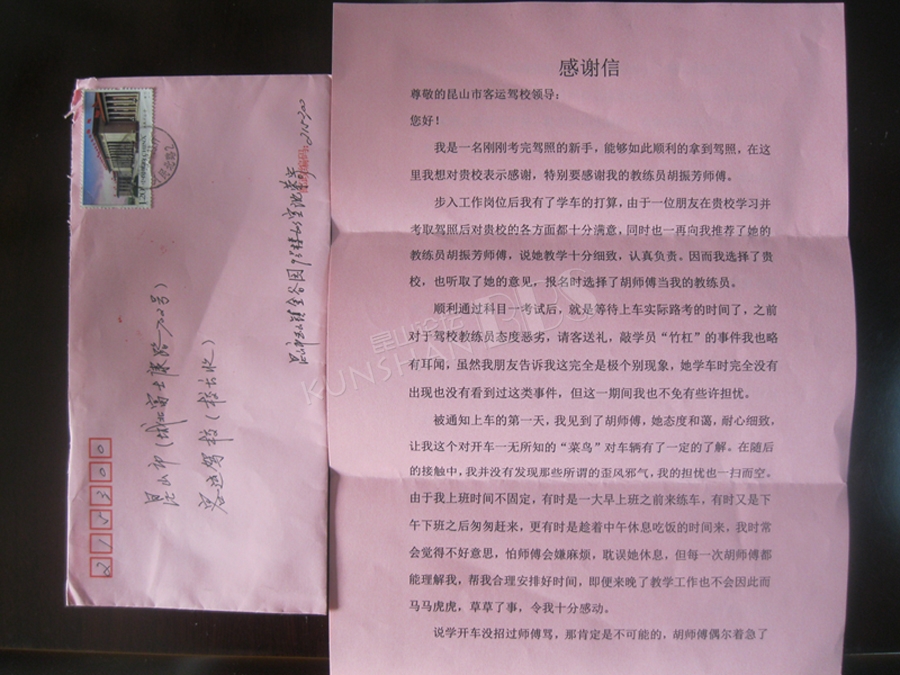 感谢信
尊敬的昆山市客运驾校领导：
您好！
我是一名刚刚考完驾照的新手，能够如此顺利的拿到驾照，在这
里我想对贵校表示感谢，特别要感谢我的教练员胡振芳师傅。
步入工作岗位后我有了学车的打算，由于一位朋友在贵校学习并
考取驾照后对贵校的各方面都十分满意，同时也一再向我推荐了她的
教练员胡振芳师傅，说她教学十分细致，认真负责。因而我选择了贵
校，也听取了她的意见，报名时选择了胡师傅当我的教练员。
顺利通过科目一考试后，就是等待上车实际路考的时间了，之前
对于驾校教练员态度恶劣，请客送礼，敲学员“竹杠”的事件我也略
有耳闻，虽然我朋友告诉我这完全是极个别现象，她学车时完全没有
出现也没有看到过这类事件，但这一期间我也不免有些许担忧。
被通知上车的第一天，我见到了胡师傅，她态度和蔼，耐心细致，
让我这个对开车一无所知的“菜鸟”对车辆有了一定的了解。在随后
的接触中，我并没有发现那些所谓的歪风邪气，我的担忧也一扫而空。
由于我上班时间不固定，有时是一大早上班之前来练车，有时又是下
午下班之后匆匆赶来，更有时是趁着中午休息吃饭的时间来，我时常
会觉得不好意思，怕师傅会嫌麻烦，耽误她休息，但每一次胡师傅都
能理解我，帮我合理安排好时间，即便来晚了教学工作也不会因此而
马马虎虎，草草了事，令我十分感动。
说学开车没招过师傅骂，那肯定是不可能的，胡师傅偶尔着急了
215300
昆山市（城北富士康路702号）
客运驾校（校长收）
215300
KUNSHAN